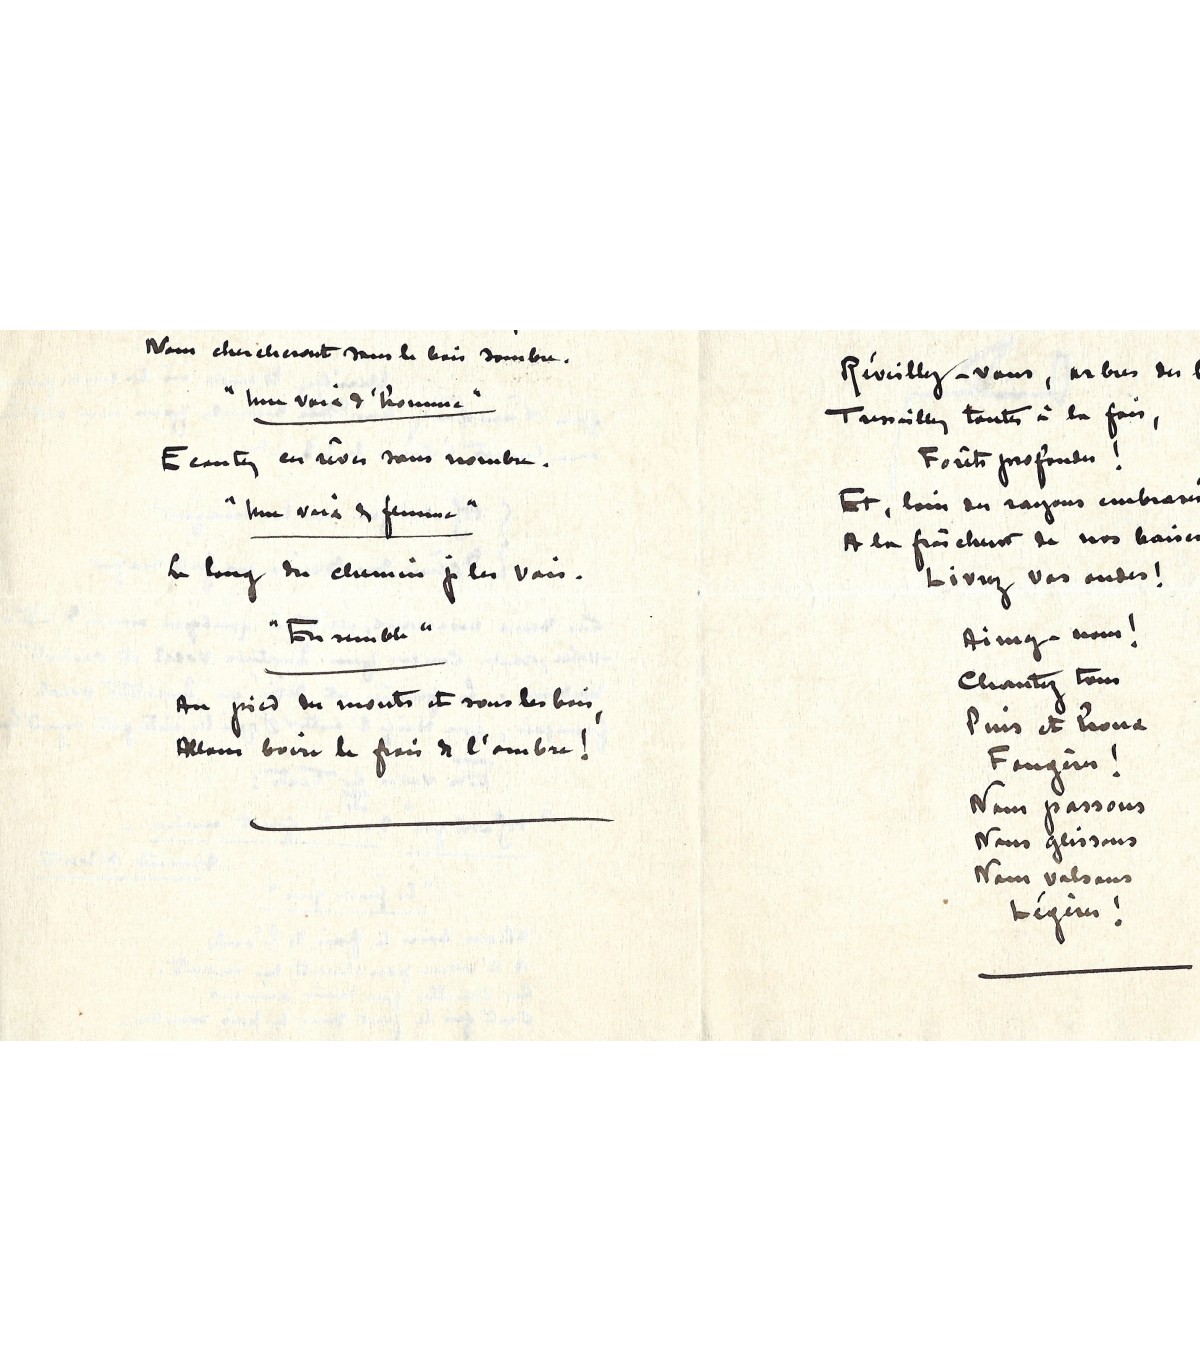 Nous chercheront sous le bois sombre.
"Une voix d'homme"
Ecoutez ces rêves sans nombre.
"Une voix de femme"
Le long du chemin je les vois.
"Ensemble"
Au pied des monts et sous les bois,
Allons boire le frais de l'ombre!
Réveillez-vous, arbres des
Tressaillez toutes à la fois,
Forêts profondes!
Et, loin des rayons embrasés
A la fraîcheur de nos baisers
Livrez vos ondes!
Aimez-nous!
Chantez tous
Pins et houx
Fougères!
Nous passons
Nous glissons
Nous valsons
Légères!